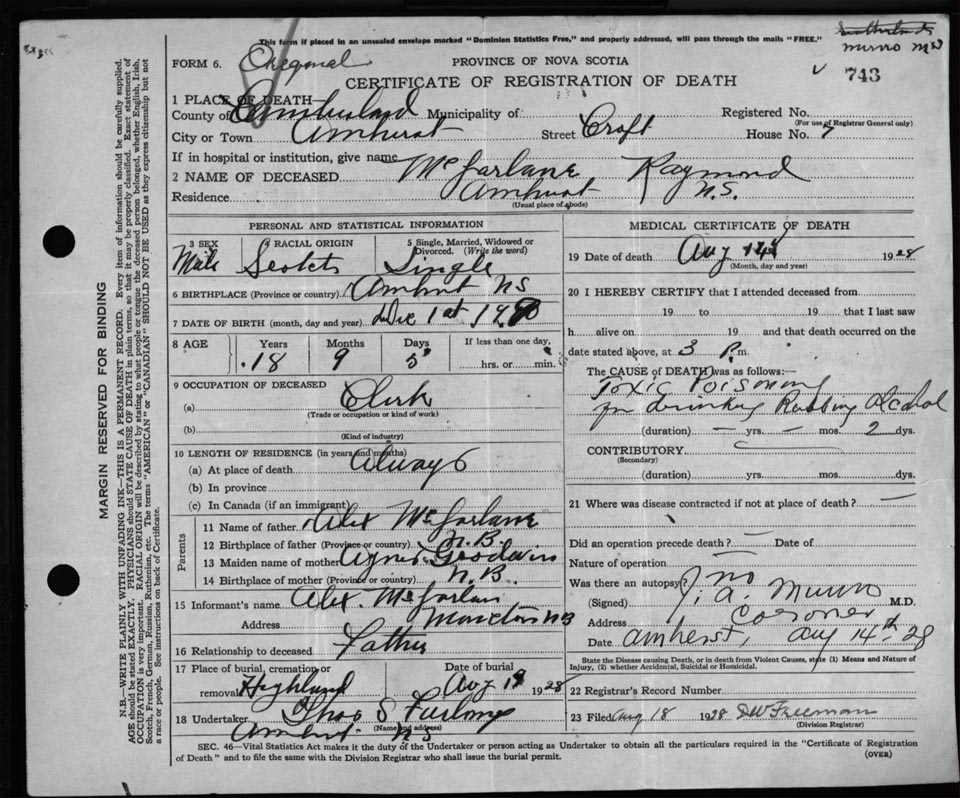 This form if placed in an unsealed envelope marked "Dominion Statistics Free," and properly addressed, will pass through the mails "FREE."
munro
FORM 6.
PROVINCE OF NOVA SCOTIA
743
CERTIFICATE OF REGISTRATION OF DEATH
1 PLACE OF DEATH—
County of Cumberland Municipality of Registered No.
(For use of Registrar General only)
City or Town Amherst Street Croft House No. 7
If in hospital or institution, give name
2 NAME OF DECEASED McFarlane Raymond
Residence Amherst N.S.
(Usual place of abode)
PERSONAL AND STATISTICAL INFORMATION
3 SEX RACIAL ORIGIN 5 Single, Married, Widowed or Divorced. (Write the word)
Male Scotch Single
6 BIRTHPLACE (Province or country) Amherst NS
7 DATE OF BIRTH (month, day and year) Dec 1st
8 AGE Years Months Days If less than one day,
18 9 5 hrs. or min.
9 OCCUPATION OF DECEASED
(a) Clerk
(Trade or occupation or kind of work)
(b)
(Kind of industry)
10 LENGTH OF RESIDENCE (in years and months)
(a) At place of death Always
(b) In province
(c) In Canada (if an immigrant)
Parents
11 Name of father Alex McFarlane
12 Birthplace of father (Province or country) N.B.
13 Maiden name of mother Agnes Goodwin
14 Birthplace of mother (Province or country) N.B.
15 Informant's name Alex. McFarlane
Address Moncton NB
16 Relationship to deceased Father
17 Place of burial, cremation or removal Highland Date of burial Aug 1928
18 Undertaker Thos S Furlong
(Name and address)
Amherst N S
MEDICAL CERTIFICATE OF DEATH
19 Date of death Aug 1928
(Month, day and year)
20 I HEREBY CERTIFY that I attended deceased from
19 to 19 that I last saw
h alive on 19 and that death occurred on
date stated above, at 3 P.m.
The CAUSE OF DEATH was as follows:—
Toxic Poisoning
fm drinking Rubbing Alcohol
(duration) — yrs. — mos. 2 dys.
CONTRIBUTORY
(Secondary)
(duration) yrs. mos. dys.
21 Where was disease contracted if not at place of death? —
Did an operation precede death? — Date of
Nature of operation —
Was there an autopsy? no
(Signed) J. A. Munro M.D.
Address Coroner
Date Amherst, Aug 14th 28
State the Disease causing Death, or in death from Violent Causes, state (1) Means and Nature of Injury, (2) whether Accidental, Suicidal or Homicidal.
22 Registrar's Record Number
23 Filed Aug 18 1928 Freeman
(Division Registrar)
SEC. 46—Vital Statistics Act makes it the duty of the Undertaker or person acting as Undertaker to obtain all the particulars required in the "Certificate of Registration
of Death" and to file the same with the Division Registrar who shall issue the burial permit. (OVER)
MARGIN RESERVED FOR BINDING
N.B.—WRITE PLAINLY WITH UNFADING INK—THIS IS A PERMANENT RECORD. Every item of information should be carefully supplied.
AGE should be stated EXACTLY. PHYSICIANS should STATE CAUSE OF DEATH in plain terms, so that it may be properly classified. Exact statement of
OCCUPATION is very important. RACIAL ORIGIN will be described by stating to what people or tongue the deceased person belonged, whether English, Irish,
Scotch, French, German, Russian, Ruthenian, etc. The terms "AMERICAN" or "CANADIAN" SHOULD NOT BE USED as they express citizenship but not
a race or people. See instructions on back of Certificate.